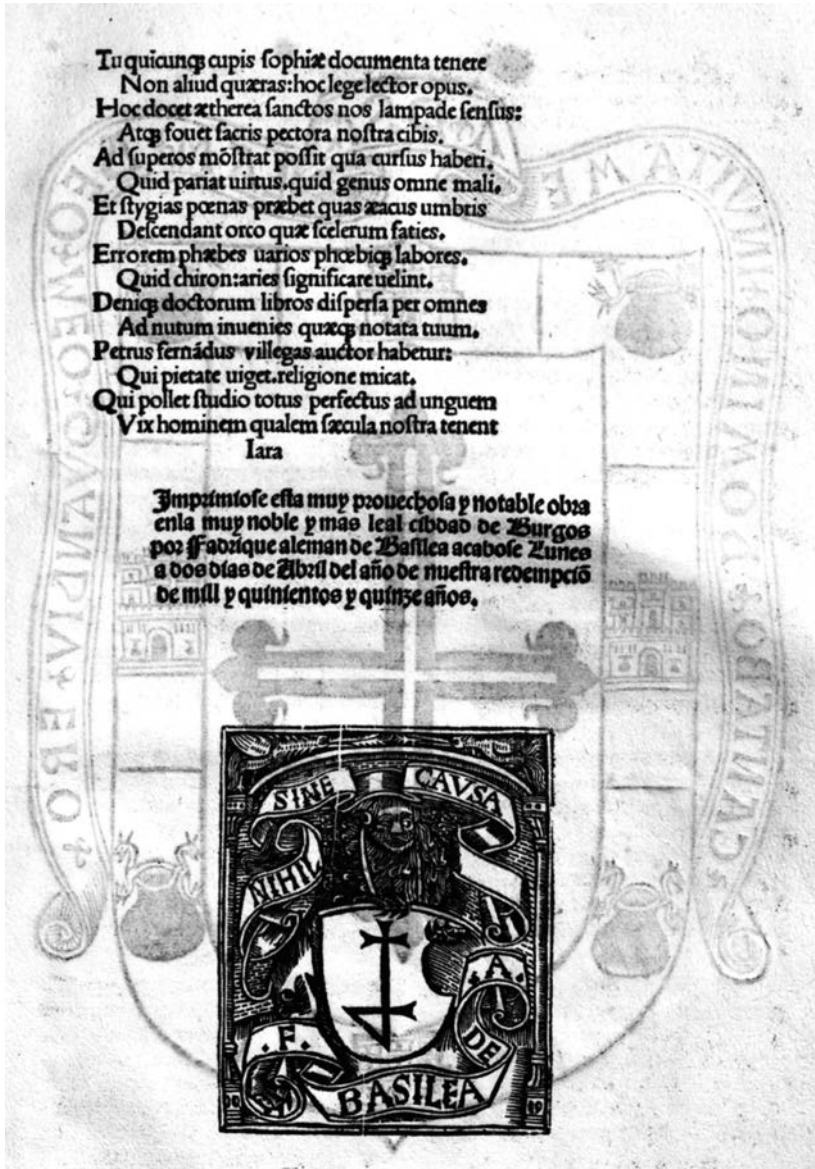 Tu quicunqꝫ cupis sophiæ documenta tenere
Non aliud quæras:hoc lege lector opus.
Hoc docet ætherea sanctos nos lampade sensus:
Atqꝫ fouet sacris pectora nostra cibis.
Ad superos mõstrat possit qua cursus haberi.
Quid pariat uirtus.quid genus omne mali.
Et stygias pœnas præbet quas æacus umbris
Descendant orco quæ scelerum faties.
Errorem phæbes uarios phœbiqꝫ labores.
Quid chiron:aries significare uelint.
Deniqꝫ doctorum libros dispersa per omnes
Ad nutum inuenies quæqꝫ notata tuum.
Petrus fernãdus villegas auctor habetur:
Qui pietate uiget.religione micat.
Qui pollet studio totus perfectus ad unguem
Vix hominem qualem sæcula nostra tenent
Iara
Imprimiose esta muy prouechosa y notable obra
enla muy noble y mas leal cibdad de Burgos
por Fadrique aleman de Basilea acabose Lunes
a dos dias de Abril del año de nuestra redempciõ
de mill y quinientos y quinze años.
NIHIL SINE CAVSA
.F. .A. DE
BASILEA